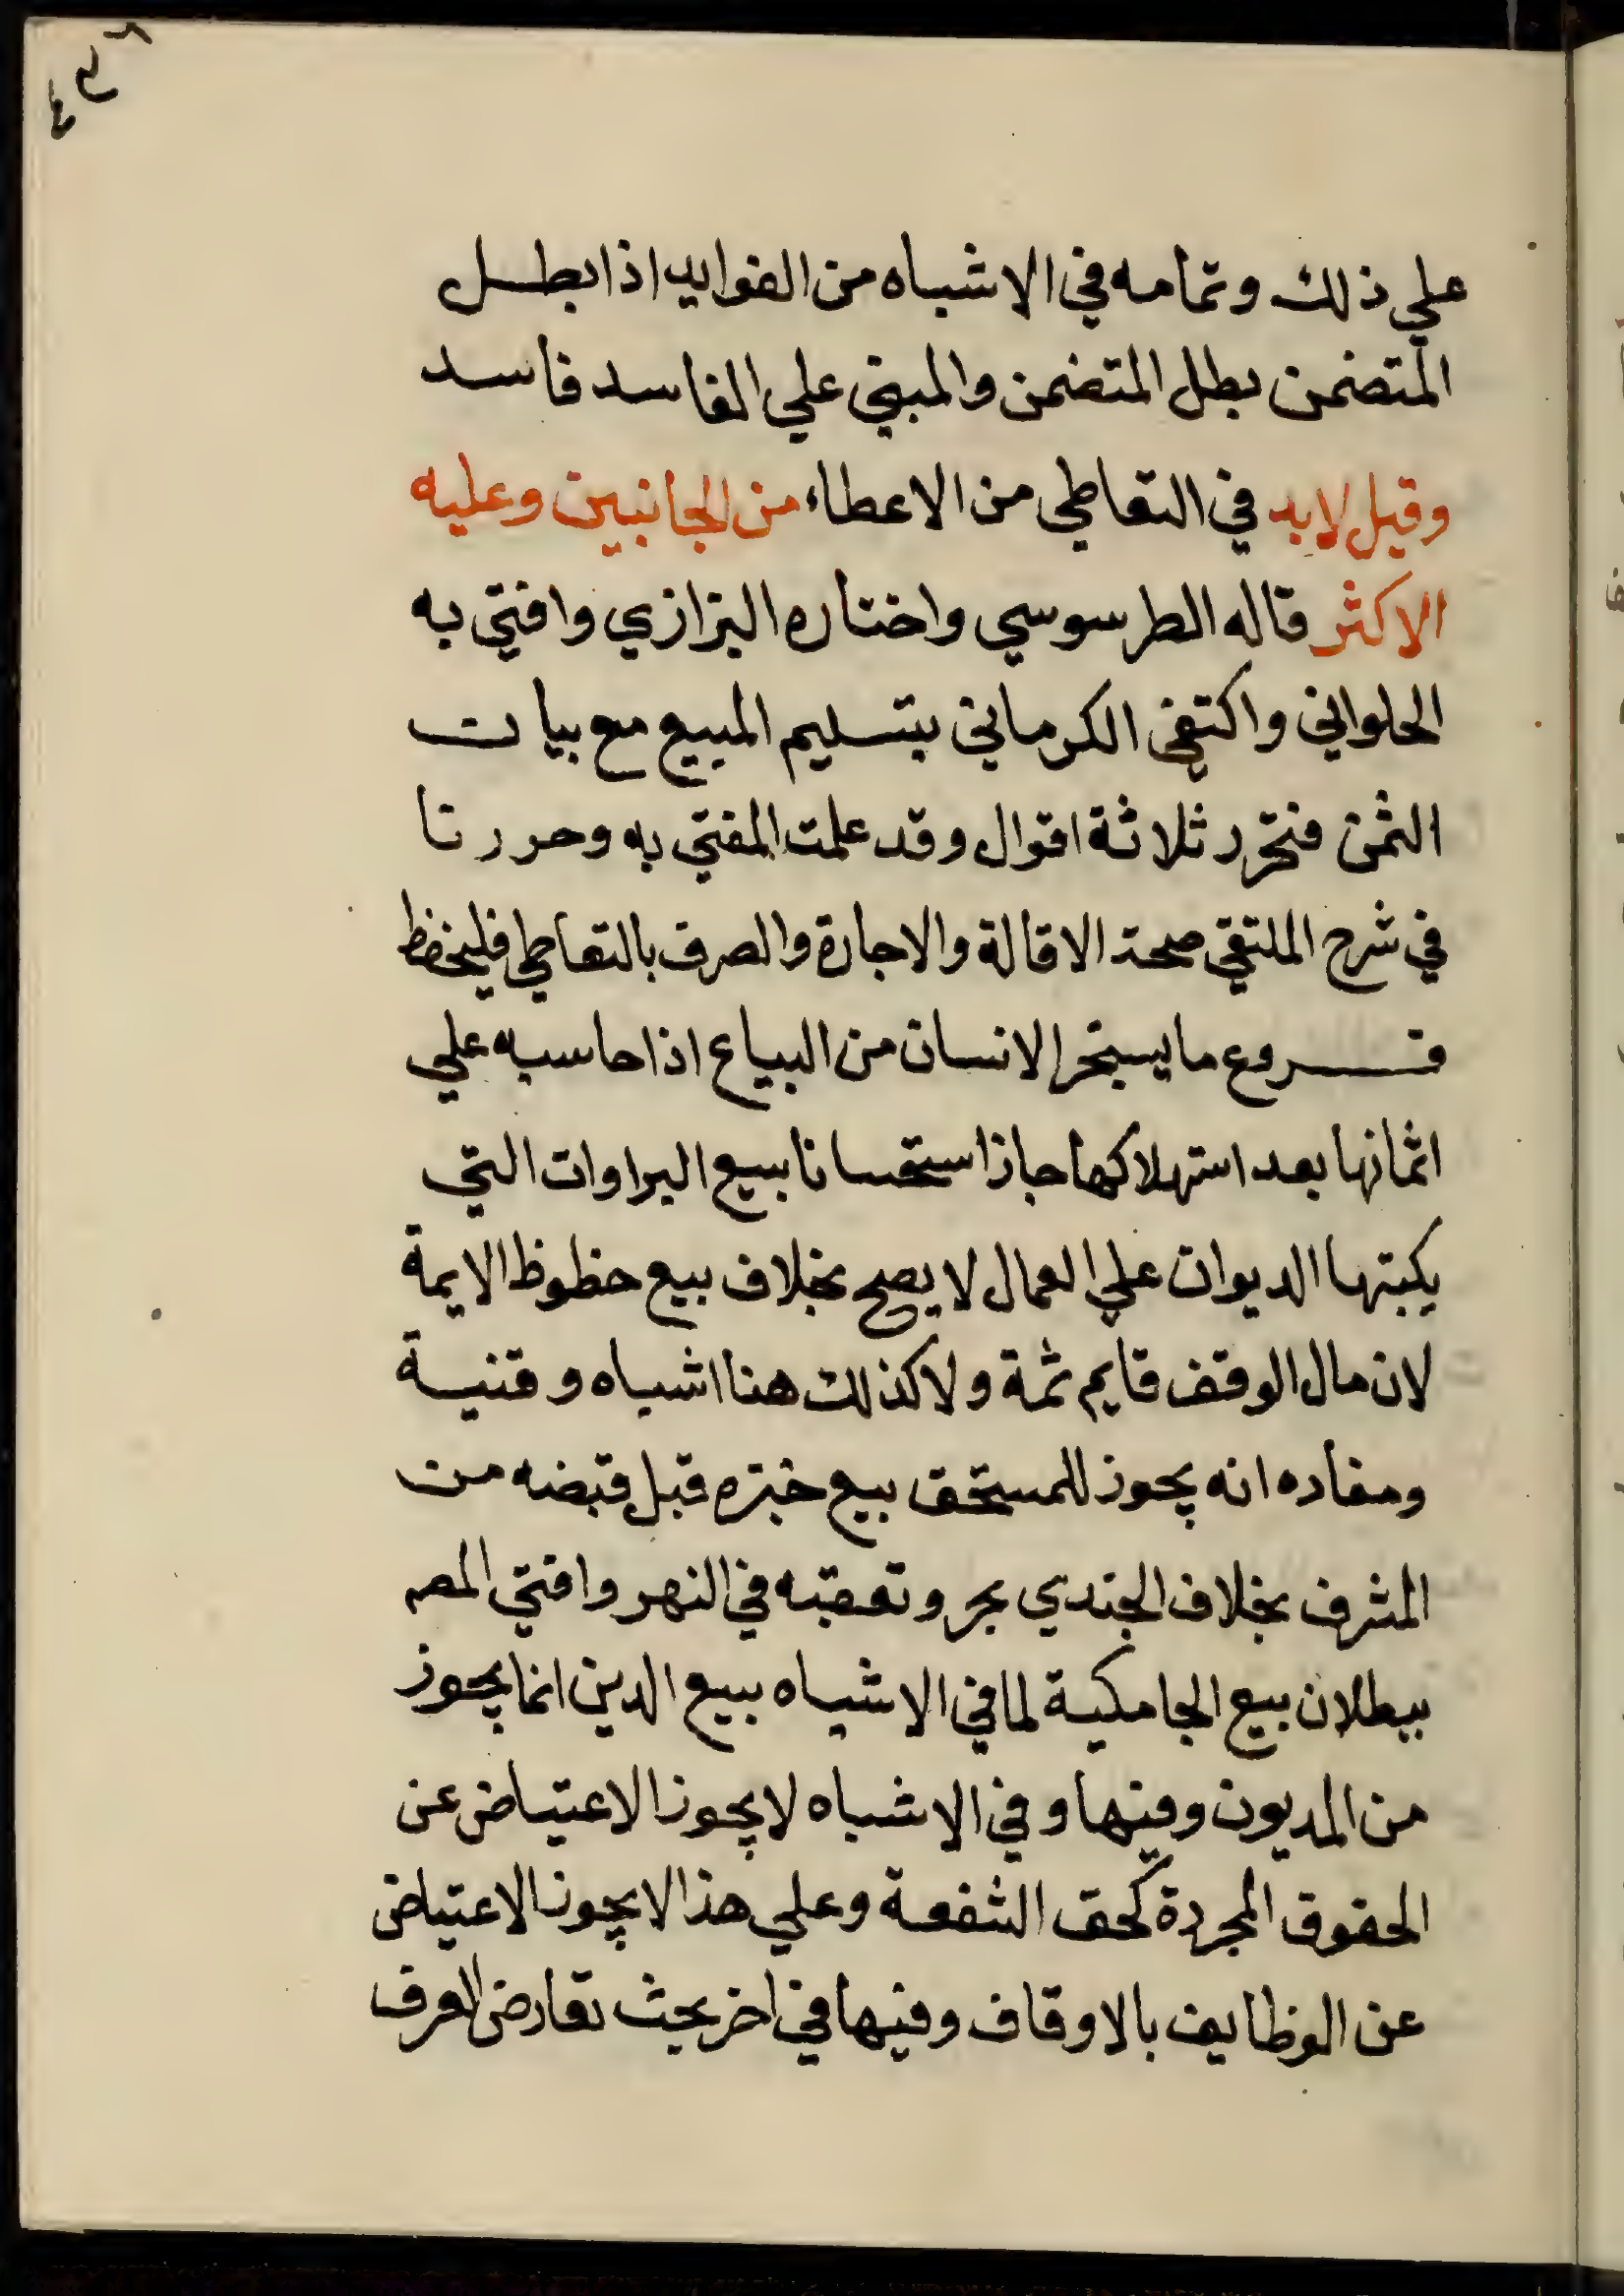 علي ذلك وتمامه في الاشباه من الفوايد اذا بطل
المتضمن بطل المتضمن والمبني علي الفاسد فاسد
وقيل لابد في التعاطي من الاعطاء من الجانبين وعليه
الاكثر قاله الطرسوسي واختاره البزازي وافتي به
الحلواني واكتفي الكرماني بتسليم المبيع مع بيان
الثمن فتحرر ثلاثة اقوال وقد علمت المفتي به وحررنا
في شرح الملتقي صحة الاقالة والاجارة والصرف بالتعاطي فليحفظ
فروع ما يستجر الانسان من البياع اذا حاسبه علي
اثمانها بعد استهلاكها جاز استحسانا بيع البراوات التي
يكتبها الديوان علي العمال لا يصح بخلاف بيع حظوظ الايمة
لان مال الوقف قايم ثمة ولا كذلك هنا اشباه وقنية
ومفاده انه يجوز للمستحق بيع خبزه قبل قبضه من
المشرف بخلاف الجندي بحر وتعقبه في النهر وافتي المصـ
ببطلان بيع الجامكية لما في الاشباه بيع الدين انما يجوز
من المديون وفيها وفي الاشباه لا يجوز الاعتياض عن
الحقوق المجردة كحق الشفعة وعلي هذا لا يجوز الاعتياض
عن الوظايف بالاوقاف وفيها في اخر بحث تعارض العرف